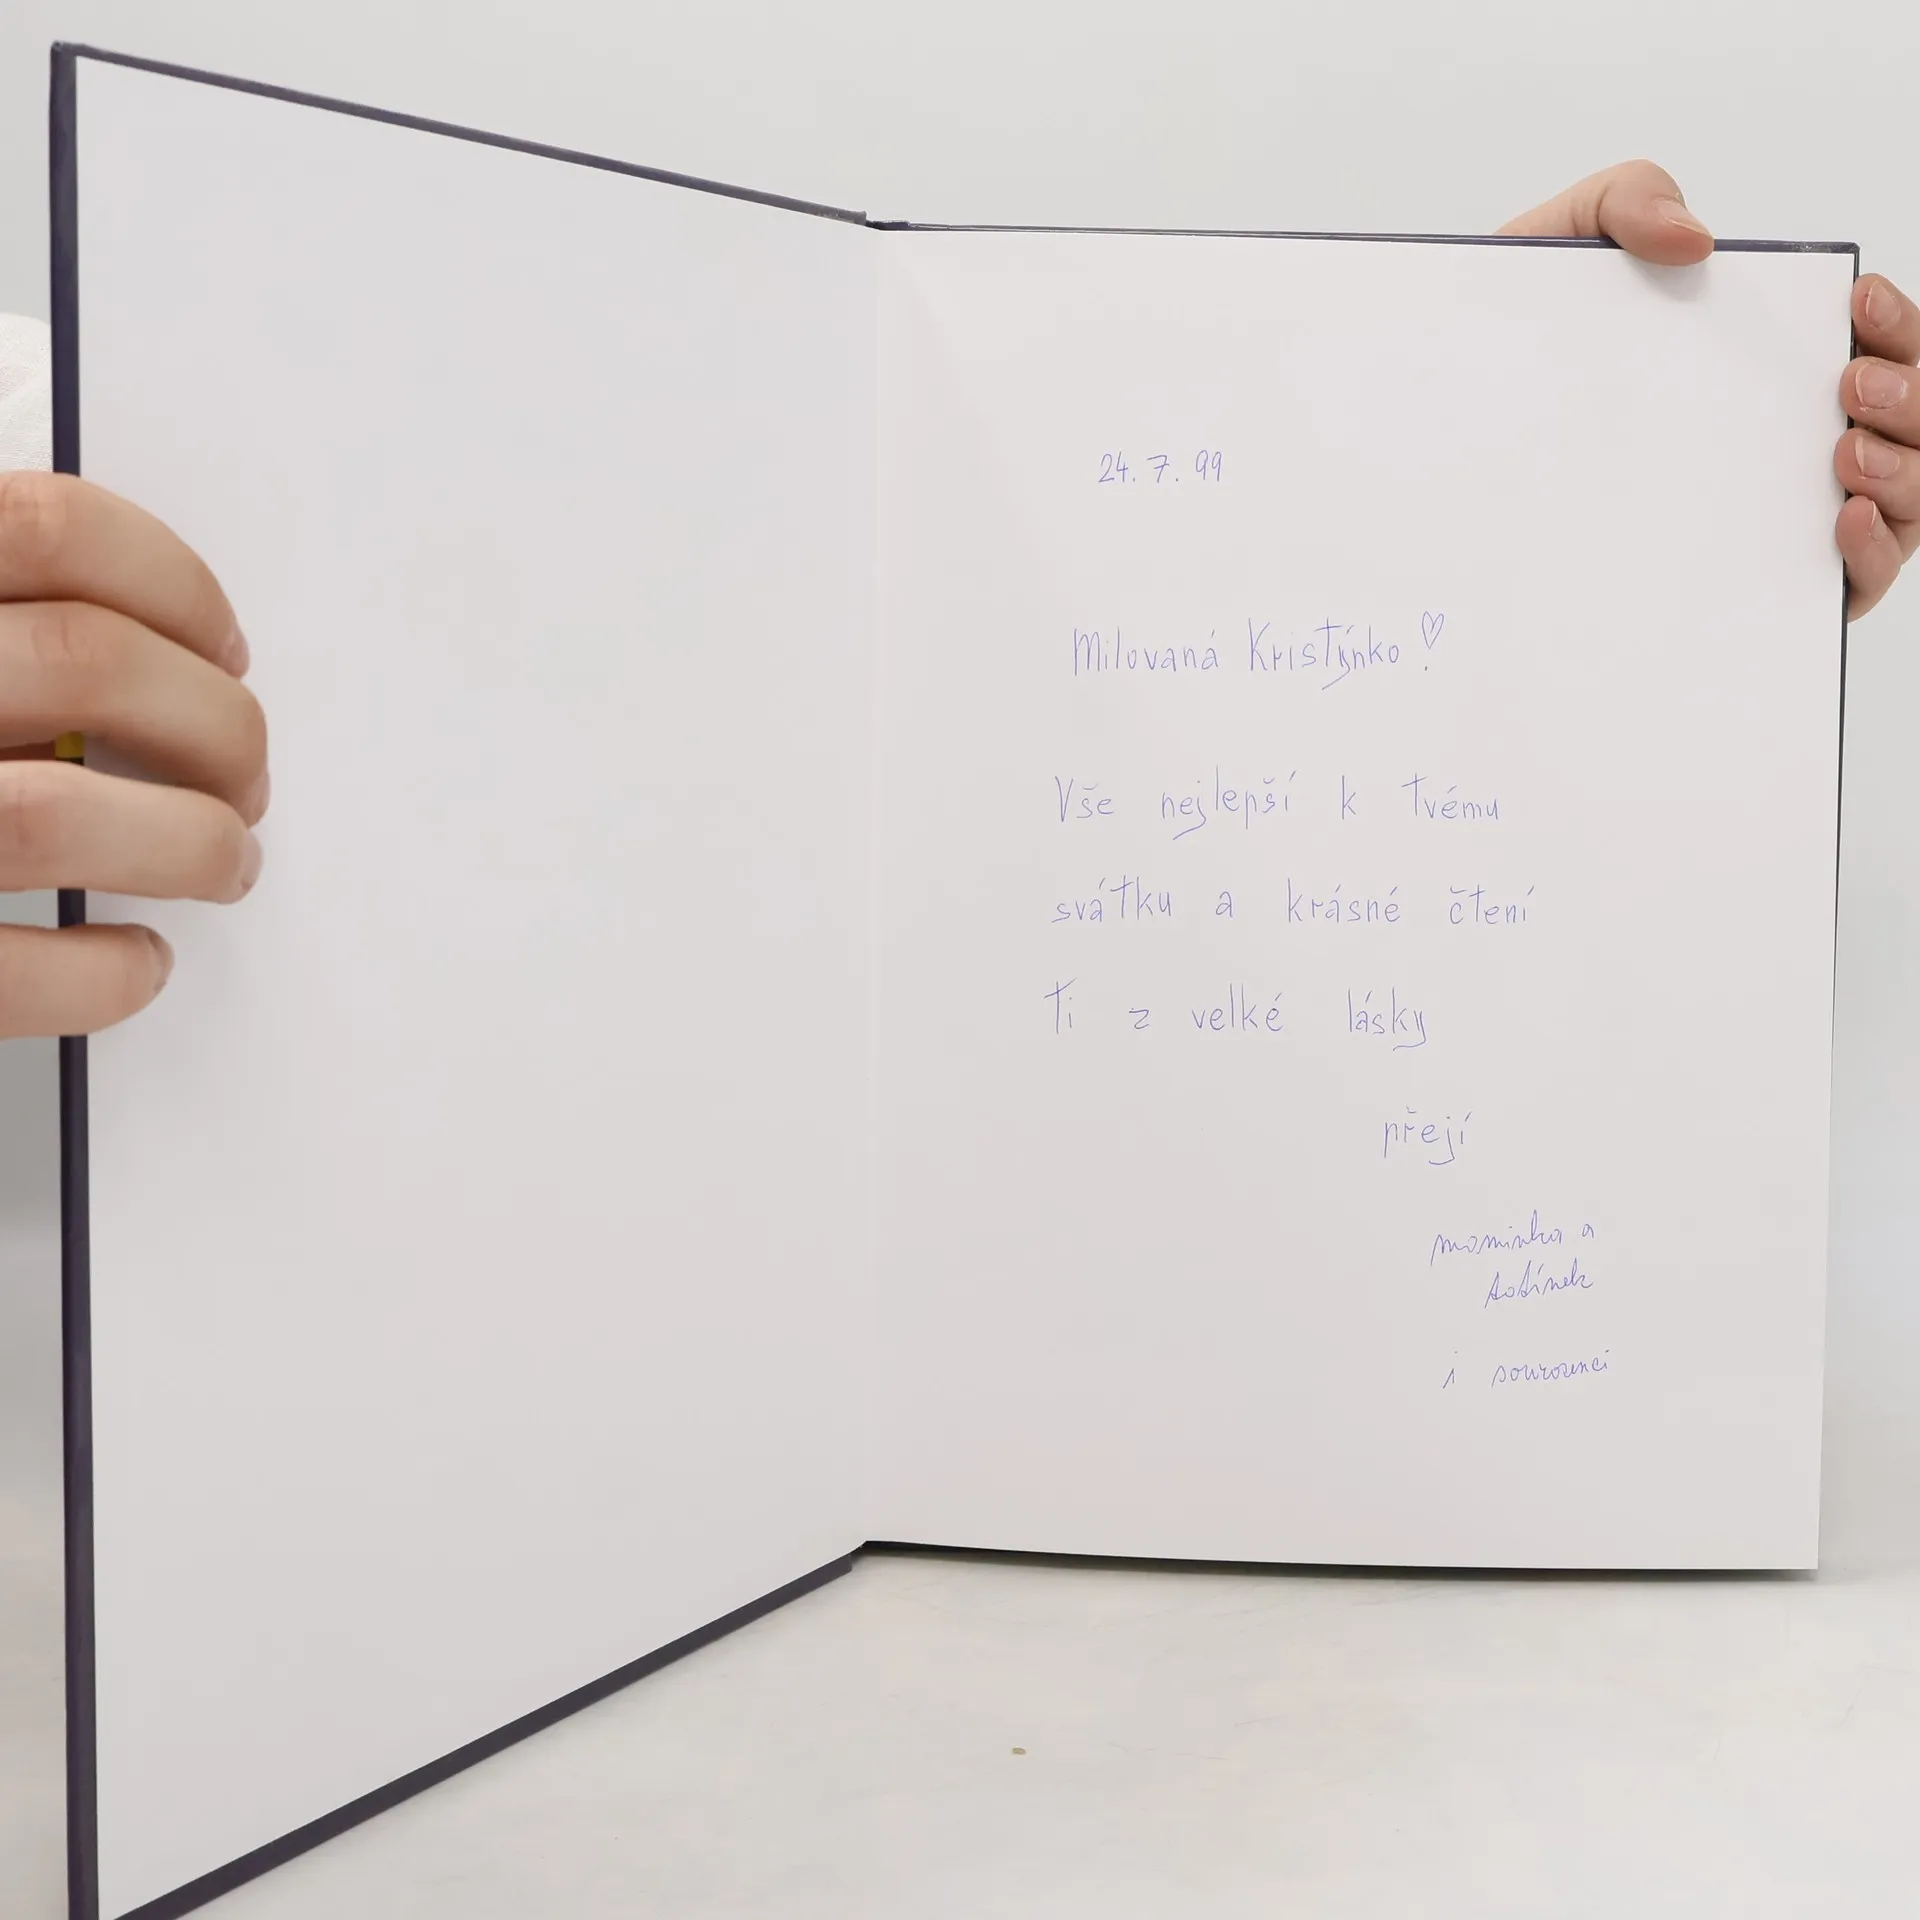 24. 7. 99
Milovaná Kristýnko!
Vše nejlepší k Tvému
svátku a krásné čtení
Ti z velké lásky
přejí
maminka a
tatínek
i sourozenci